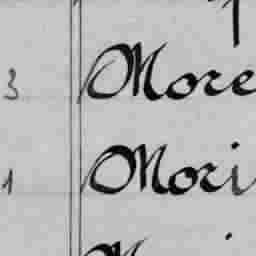 3 More
1 Mori